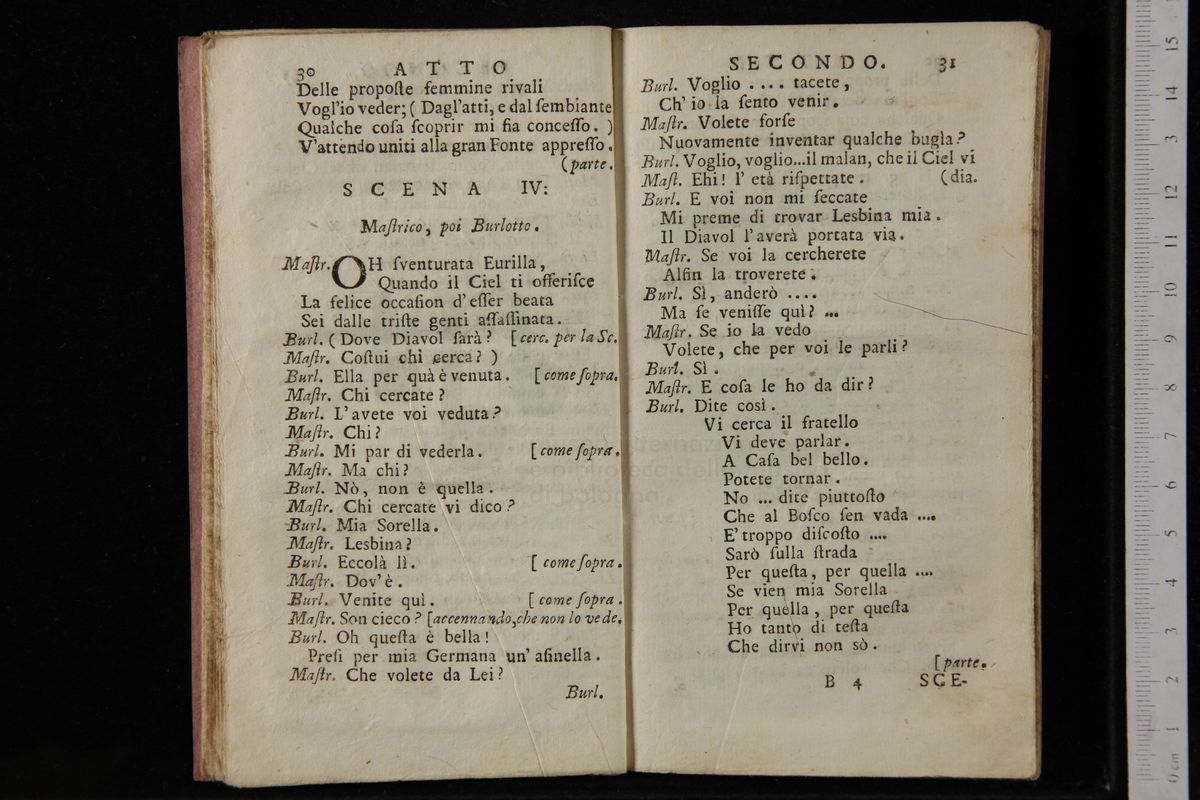 30 ATTO
Delle propoſte femmine rivali
Vogl'io veder; ( Dagl'atti, e dal ſembiante
Qualche coſa ſcoprir mi fia conceſſo. )
V'attendo uniti alla gran Fonte appreſſo.
(parte.
SCENA IV:
Maſtrico, poi Burlotto.
Maſtr. OH ſventurata Eurilla,
Quando il Ciel ti offeriſce
La felice occaſion d'eſſer beata
Sei dalle triſte genti aſſaſſinata.
Burl. ( Dove Diavol ſarà? [cerc. per la Sc.
Maſtr. Coſtui chi cerca? )
Burl. Ella per quà è venuta. [come ſopra.
Maſtr. Chi cercate?
Burl. L'avete voi veduta?
Maſtr. Chi?
Burl. Mi par di vederla. [come ſopra.
Maſtr. Ma chi?
Burl. Nò, non è quella.
Maſtr. Chi cercate vi dico?
Burl. Mia Sorella.
Maſtr. Lesbina?
Burl. Eccolà lì. [come ſopra.
Maſtr. Dov'è.
Burl. Venite quì. [come ſopra.
Maſtr. Son cieco? [accennando, che non lo vede.
Burl. Oh queſta è bella!
Preſi per mia Germana un' aſinella.
Maſtr. Che volete da Lei?
Burl.
SECONDO. 31
Burl. Voglio .... tacete,
Ch' io la ſento venir.
Maſtr. Volete forſe
Nuovamente inventar qualche bugìa?
Burl. Voglio, voglio...il malan, che il Ciel vi
Maſt. Ehi! l' età riſpettate. (dia.
Burl. E voi non mi ſeccate
Mi preme di trovar Lesbina mia.
Il Diavol l'averà portata via.
Maſtr. Se voi la cercherete
Alfin la troverete.
Burl. Sì, anderò ....
Ma ſe veniſſe quì? ...
Maſtr. Se io la vedo
Volete, che per voi le parli?
Burl. Sì.
Maſtr. E coſa le ho da dir?
Burl. Dite così.
Vi cerca il fratello
Vi deve parlar.
A Caſa bel bello.
Potete tornar.
No ... dite piuttoſto
Che al Boſco ſen vada ....
E' troppo diſcoſto ....
Sarò ſulla ſtrada
Per queſta, per quella ....
Se vien mia Sorella
Per quella, per queſta
Ho tanto di teſta
Che dirvi non sò.
[parte.
B 4 SCE-